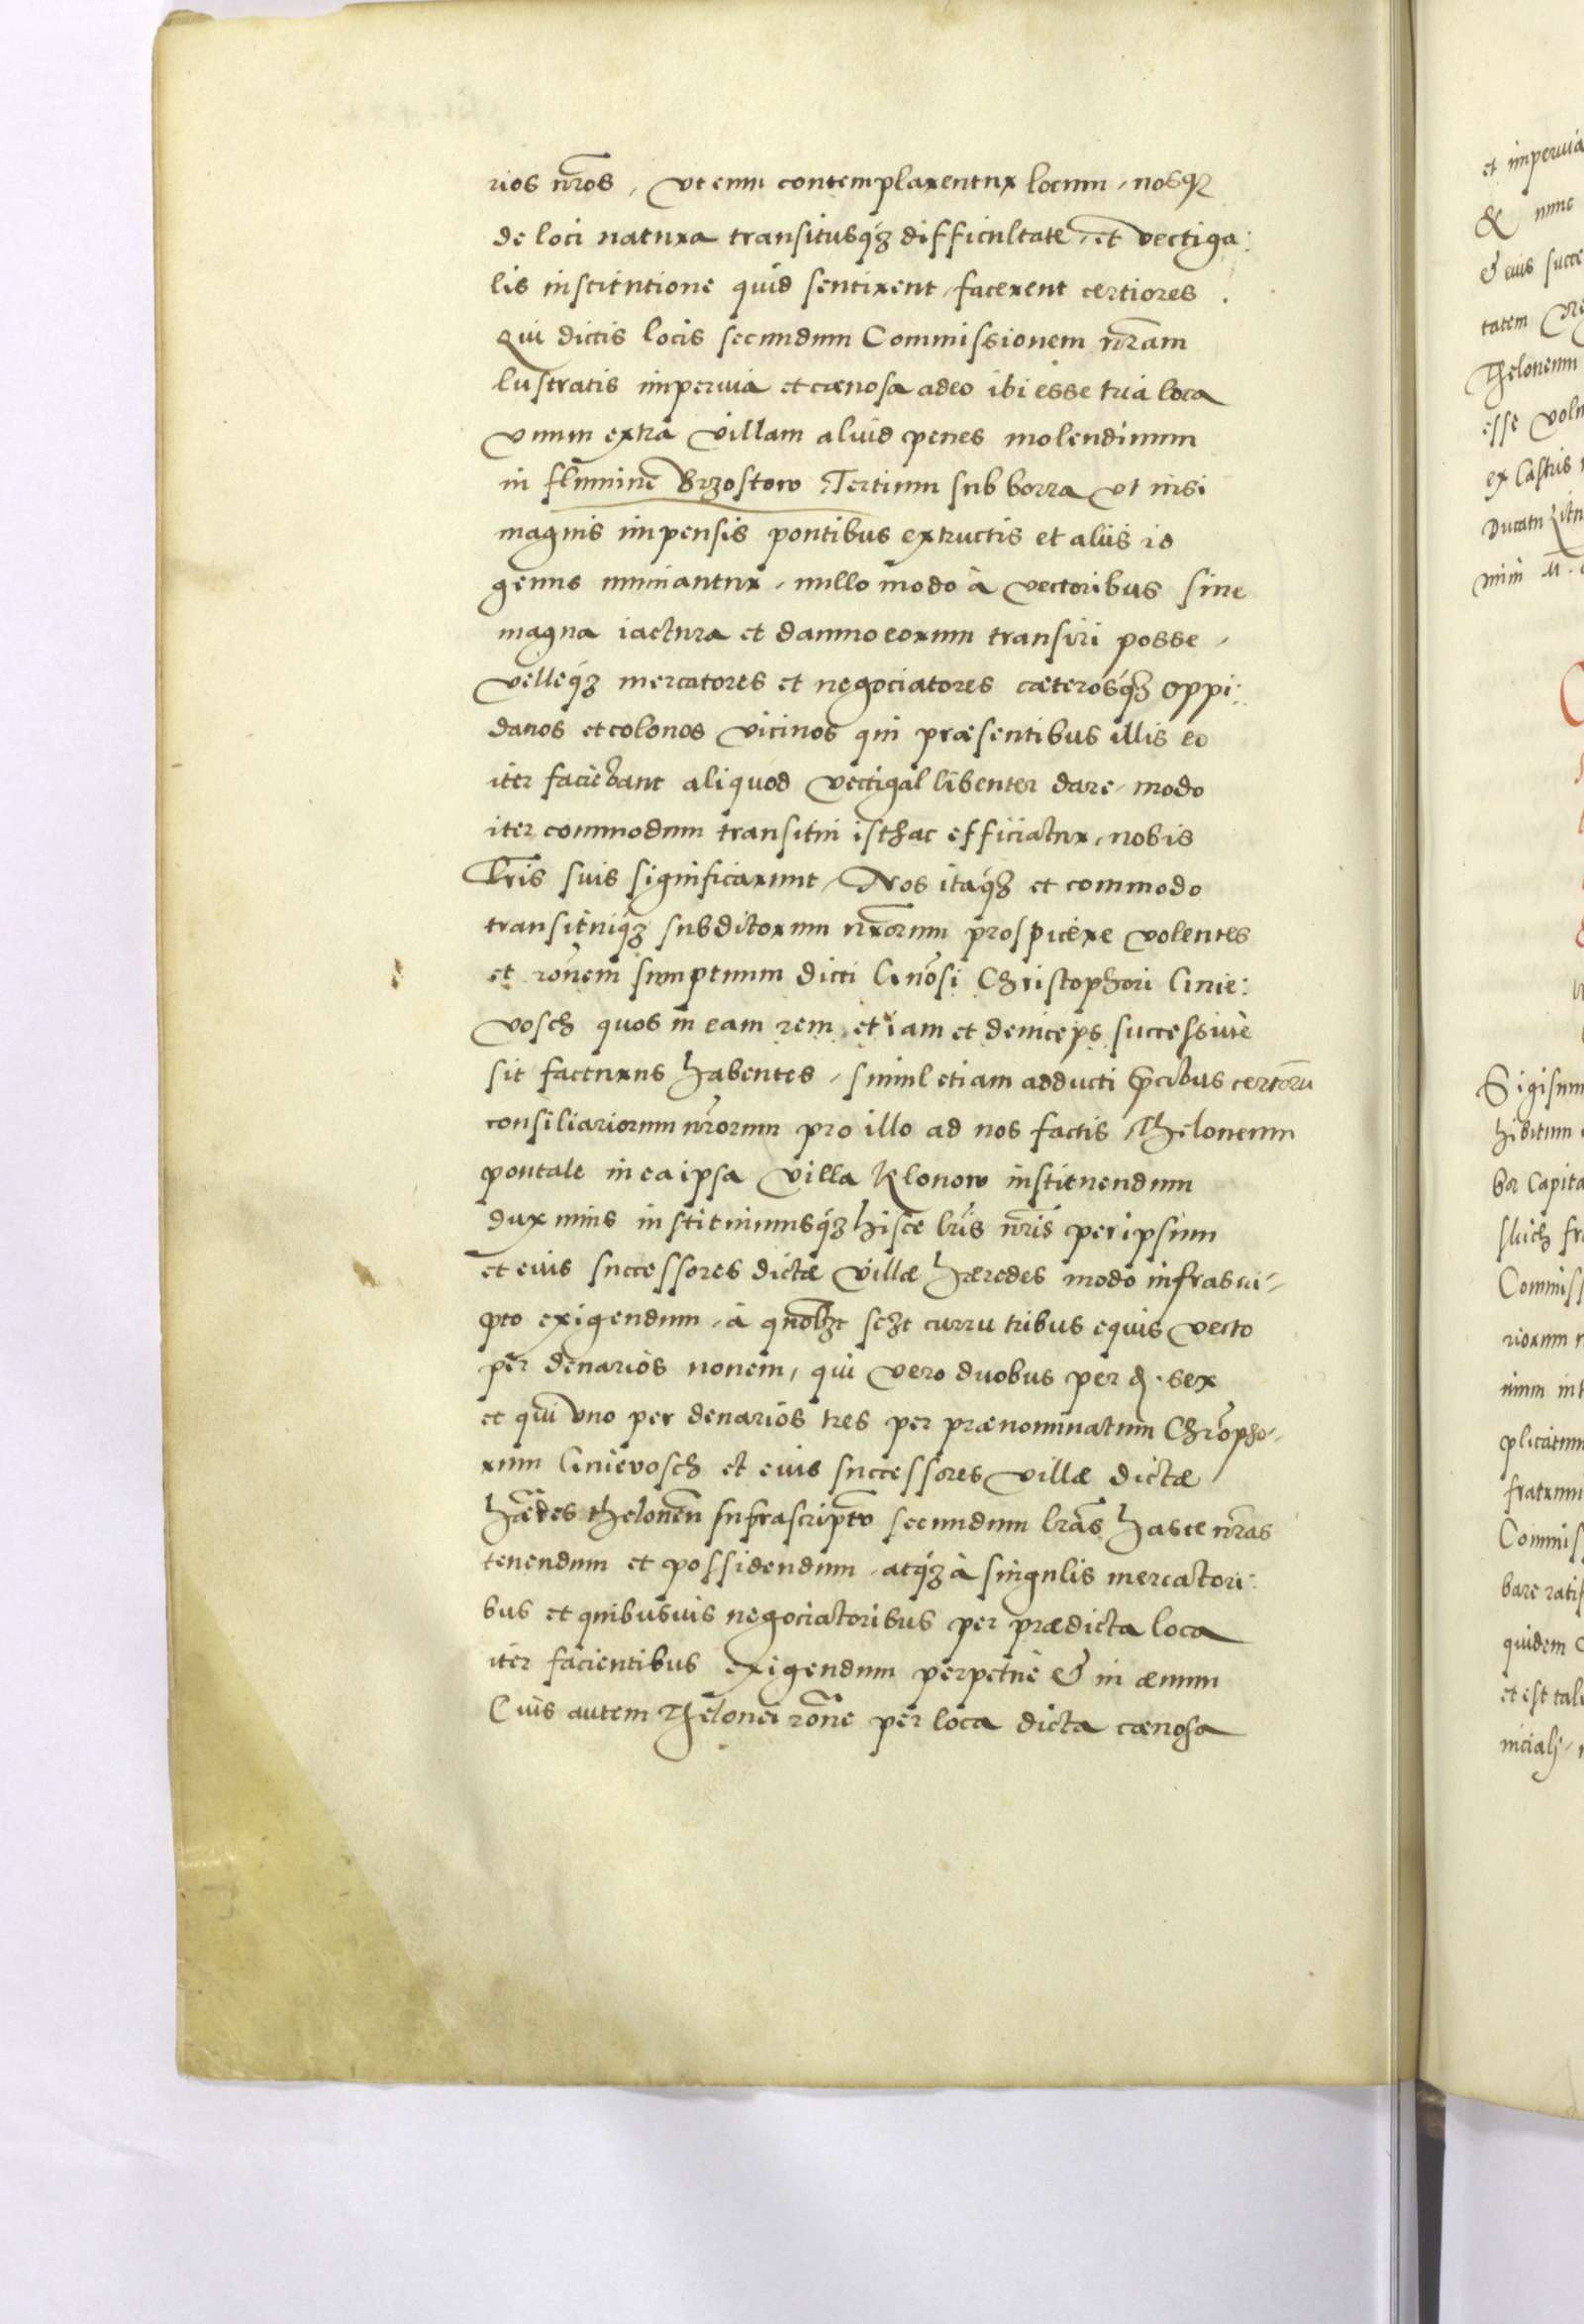 rios nr̃os, vt eum contemplarentur locum, nosq₃
de loci natura transitusq́₃ difficultate, et vectiga:
lis institutione quid sentirent, facerent certiores.
Qui dictis locis secundum Commissionem nr̃am
lustratis imperuia et cænosa adeo ibi esse tria loca
vnum extra villam aliud penes molendinum
in flumine Brzostow Tertium sub borra vt nisi
magnis impensis pontibus extructis et aliis id
genus muniantur, nullo modo à vectoribus sine
magna iactura et damno eorum transiri posse,
velleq́₃ mercatores et negociatores cæterosq́₃ oppi:
danos et colonos vicinos qui præsentibus illis eo
iter faciebant aliquod vectigal libenter dare, modo
iter commodum transitui isthac efficiatur, nobis
Lr̃is suis significarunt, Nos itaq́₃ et commodo
transituiq́₃ subditorum nr̃orum prospicere volentes
et rõnem sumptuum dicti Gnõsi Christophori Gnie:
vosch quos in eam rem et iam et deinceps successiuè
sit facturus habentes, simul etiam adducti p̃cibus certorũ
consiliariorum nr̃orum pro illo ad nos factis, Theloneum
pontale in ea ipsa villa Klonow instituendum
duximus instituimusq́₃ hisce lr̃is nr̃is per ipsum
et eius successores dictæ villæ hæredes modo infrascri-
pto exigendum, à quolz̃t sc₃t curru tribus equis vecto
per denarios nouem, qui vero duobus per ₰. sex
et qui vno per denarios tres per prænominatum Chrõpho-
rum Gnievosch et eius successores villæ dictæ
hæ̃des theloneũ infrascripto secundum lr̃as hasce nr̃as
tenendum et possidendum, atq́₃ à singulis mercatori:
bus et quibusuis negociatoribus per prædicta loca
iter facientibus exigendum perpetuè & in æuum
Cuis autem Thelonei rõne per loca dicta cænosa
et imperuia
& nunc
& eius succe
tatem
Theloneum
esse volu
ex Castris
Ducatu
Sigism
hibitum
bor Capita
fr
Commiss
riorum
nium int
plicatum
fratrum
Commis
bare ratif
quidem
et est tal